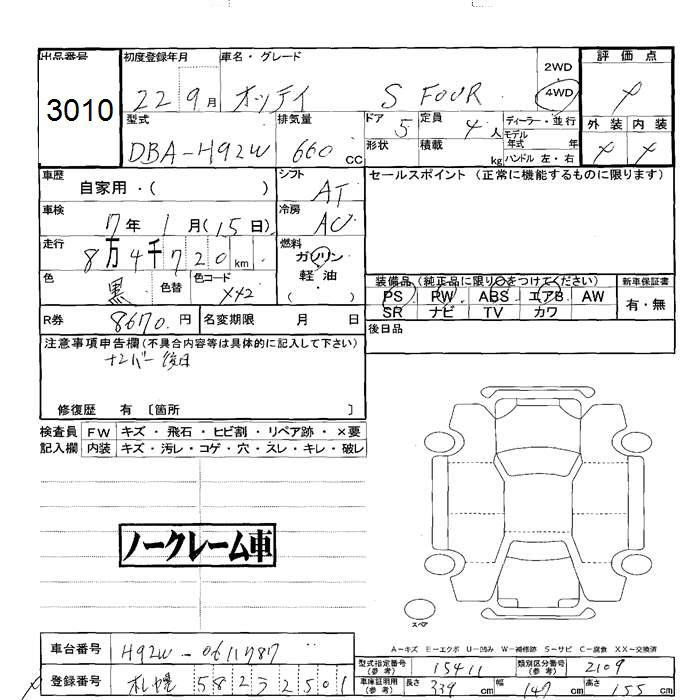 出品番号 初度登録年月 車名・グレード 2WD 評価点
3010 22 9月 オッティ S FOUR 4WD
型式 排気量 ドア 5 定員 4人 ディーラー・並行 外装 内装
DBA-H92W 660 cc 形状 積載 kg モデル年式 年
ハンドル 左・右
車歴 自家用・( ) シフト AT セールスポイント (正常に機能するものに限ります)
車検 7年 1月(15日) 冷房 AC
走行 8万4千720km 燃料 ガソリン
軽・油
( )
色 黒 色替 色コード 装備品 (純正品に限り○をつけてください) 新車保証書
PS PW ABS エアB AW 有・無
SR ナビ TV カワ
R券 8670円 名変期限 月 日 後日品
注意事項申告欄(不具合内容等は具体的に記入して下さい)
ナンバー後日
修復歴 有 〔箇所 〕
検査員 FW キズ・飛石・ヒビ割・リペア跡・×要
記入欄 内装 キズ・汚レ・コゲ・穴・スレ・キレ・破レ
ノークレーム車
スペア
A-キズ E-エクボ U-凹み W-補修跡 S-サビ C-腐食 XX-交換済
車台番号 H92W-0611787
型式指定番号(参考) 15411 類別区分番号(参考) 2109
登録番号 札幌 582 3 2501
車庫証明用(参考) 長さ 339cm 幅 147cm 高さ 155cm